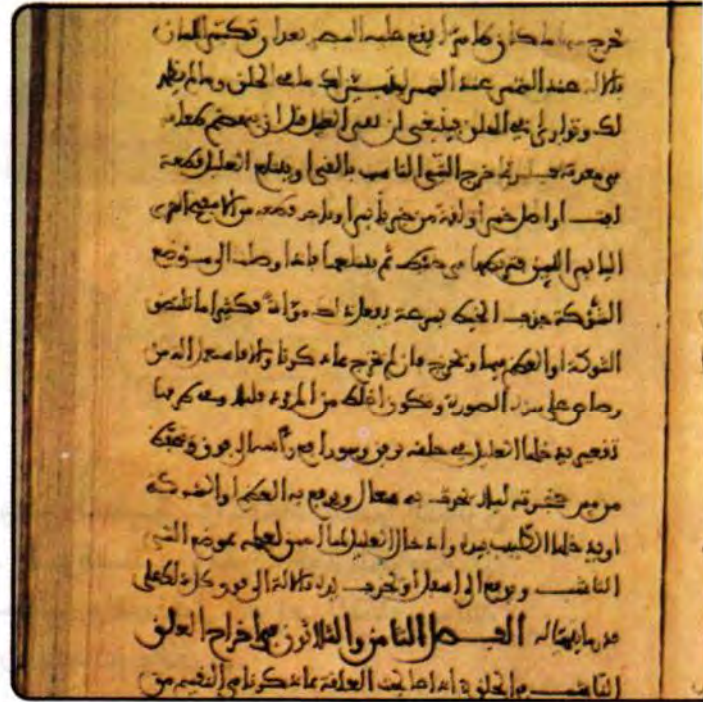 تخرج منها ما كان ظاهرا يقع عليه البصر بعد ان تكبس اللسان
بالالة عند الشمس ليتبين لك ما في الحلق وما لم يظهر
لك وتوارى في الحلق فينبغي ان تقيئ العليل قبل ان يهضم طعامه
في معدته فلربما خرج الشيء الناشب بالقيء او يبتلع العليل قطعة
لفت او اصل خس او لقمة من خبز يابس او ياخذ قطعة من الاسفنج البحري
اليابس اللين فتربطها في خيط ثم يبتلعها فاذا وصلت الى موضع
الشوكة جذب الخيط بسرعة يفعل ذلك مرات فكثيرا ما تلتصق
الشوكة او العظم فيها وتخرج فان لم تخرج بما ذكرنا والا فاستعمل الة من
رصاص على هذه الصورة وتكون اغلظ من المرود قليلا وفي طرفها
تقعير يدخلها العليل في حلقه برفق وهو رافع راسه الى فوق ويتحفظ
من مس حنجرته ليلا يحدث به سعال ويدفع به العظم او الشوكة
او يدخلها الطبيب بيده وادخال العليل لها احسن لعلمه بموضع الشيء
الناشب ويدفع الى اسفل او يجذب يده بالالة الى فوق وكل ذلك على
قدر ما يتهيا له الفصل الثامن والثلاثون في اخراج العلق
الناشب في الحلق اذا عالجت العلقة بما ذكرنا في التقسيم من